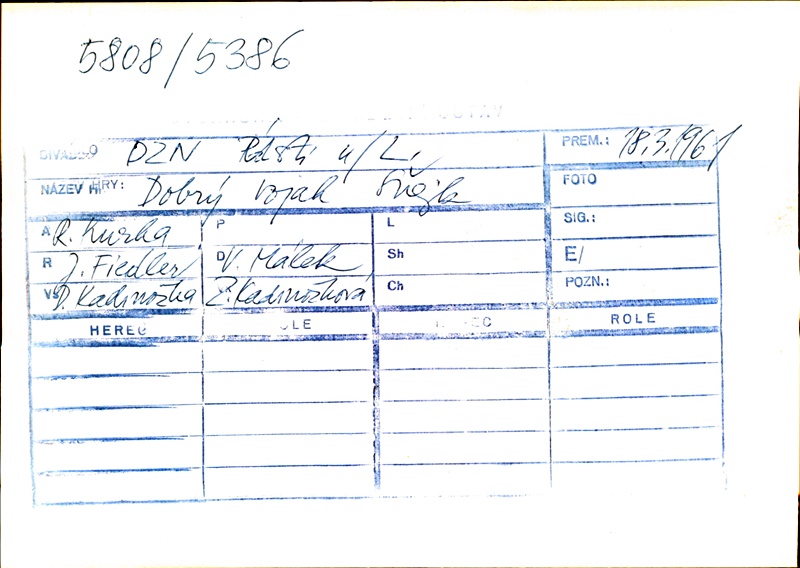 5808/5386
DIVADLO DZN Ústí n/L. PREM.: 18.3.1961
NÁZEV HRY: Dobrý voják Švejk FOTO
A R. Kurka P L SIG.:
R J. Fiedler D V. Málek Sh E/
VS D. Kadrnožka K Z. Kadrnožková Ch POZN.:
HEREC ROLE HEREC ROLE